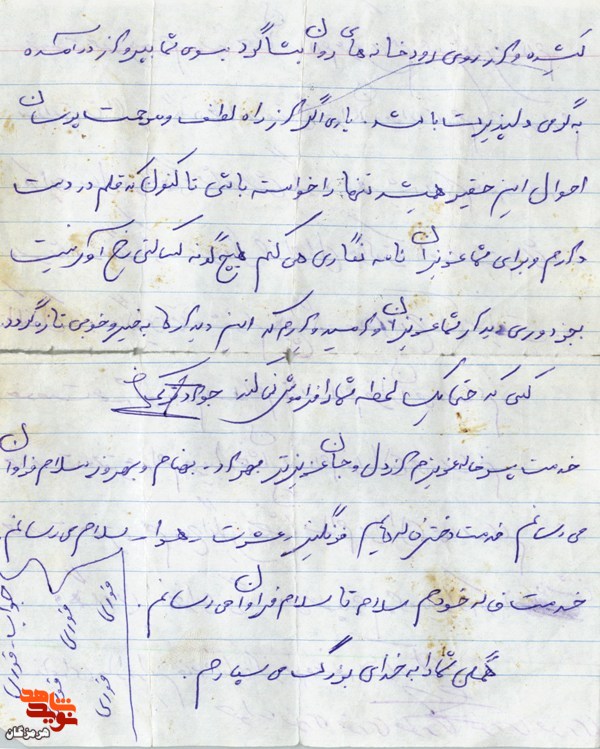 کشیده و از روی رودخانه های روان بشاگرد بسوی شما پیرواز درآمده
به گرمی دلپذیرت باشد. باری اگر از راه لطف و مرحمت پرسان
احوال این حقیر همیشه تنها را خواسته باشی تا کنون که قلم در دست
دارم و برای شما عزیزان نامه نگاری می کنم هیچ گونه کسالتی رخ آور نیست
بجز دوری دیدار شما عزیزان و امیدوارم که این دیدارها به خیر و خوبی تازه گردد
کسی که حتی یک لحظه شما را فراموش نمی کند جواد
خدمت پسرخاله عزیزم از دل و جان عزیزتر بهزاد. بهنام و بهروز سلام فراوان
می رسانم خدمت دخترخاله هایم سلام می رسانم
خدمت خاله خودم سلام تا سلام فراوان می رسانم.
همگی شما را به خدای بزرگ می سپارم.
جواب فوری
فوری فوری
فوری فوری
نوید شاهد
هرمزگان